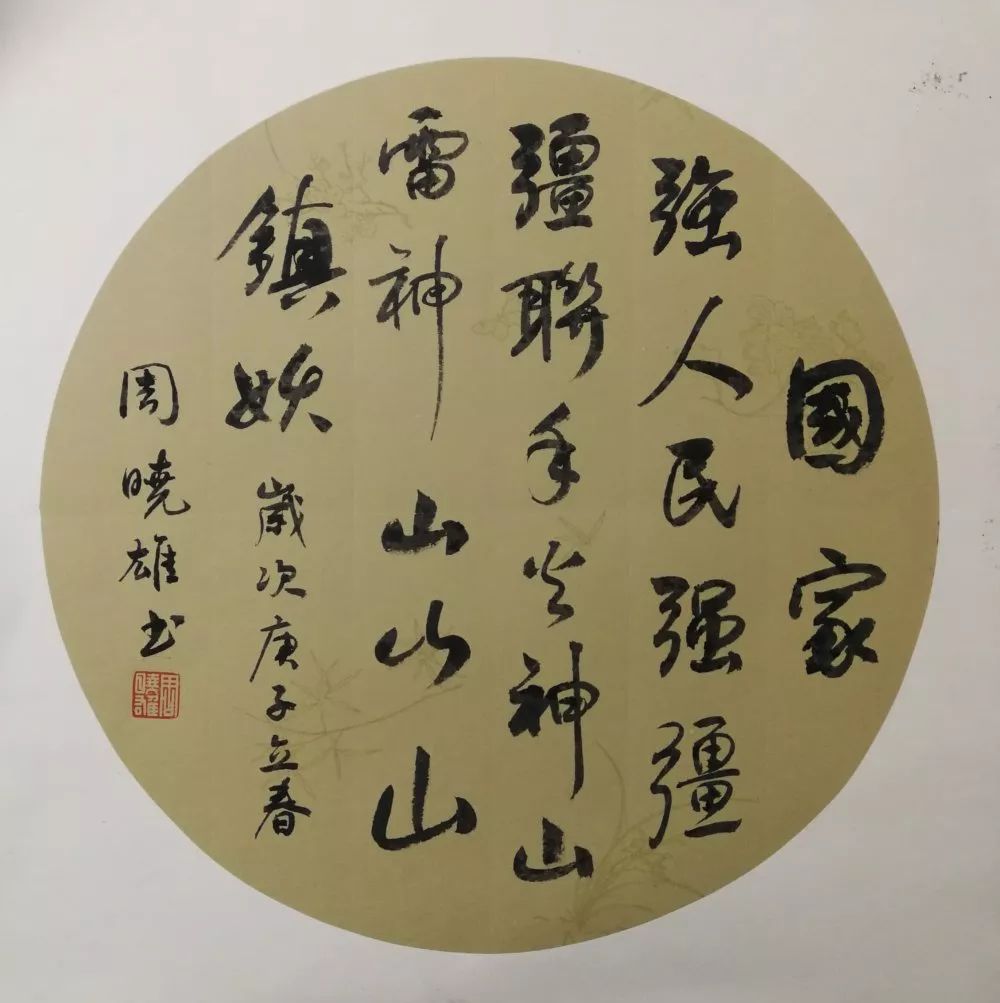 國家
强人民强彊
彊聯手火神山
雷神山山山
鎮妖歲次庚子立春
周曉雄书
周曉雄